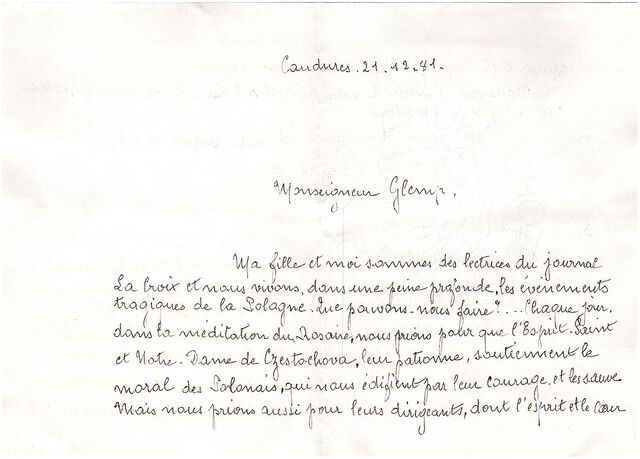 Caudures. 21.12.81.
Monseigneur Glemp.
Ma fille et moi sommes des lectrices du journal
La Croix et nous vivons, dans une peine profonde, les évènements
tragiques de la Pologne. Que pouvons-nous faire? ... Chaque jour,
dans la méditation du Rosaire, nous prions pour que l'Esprit-Saint
et Notre-Dame de Czestochova, leur patronne, soutiennent le
moral des Polonais, qui nous édifient par leur courage, et les sauve
Mais nous prions aussi pour leurs dirigeants, dont l'esprit et le cœur